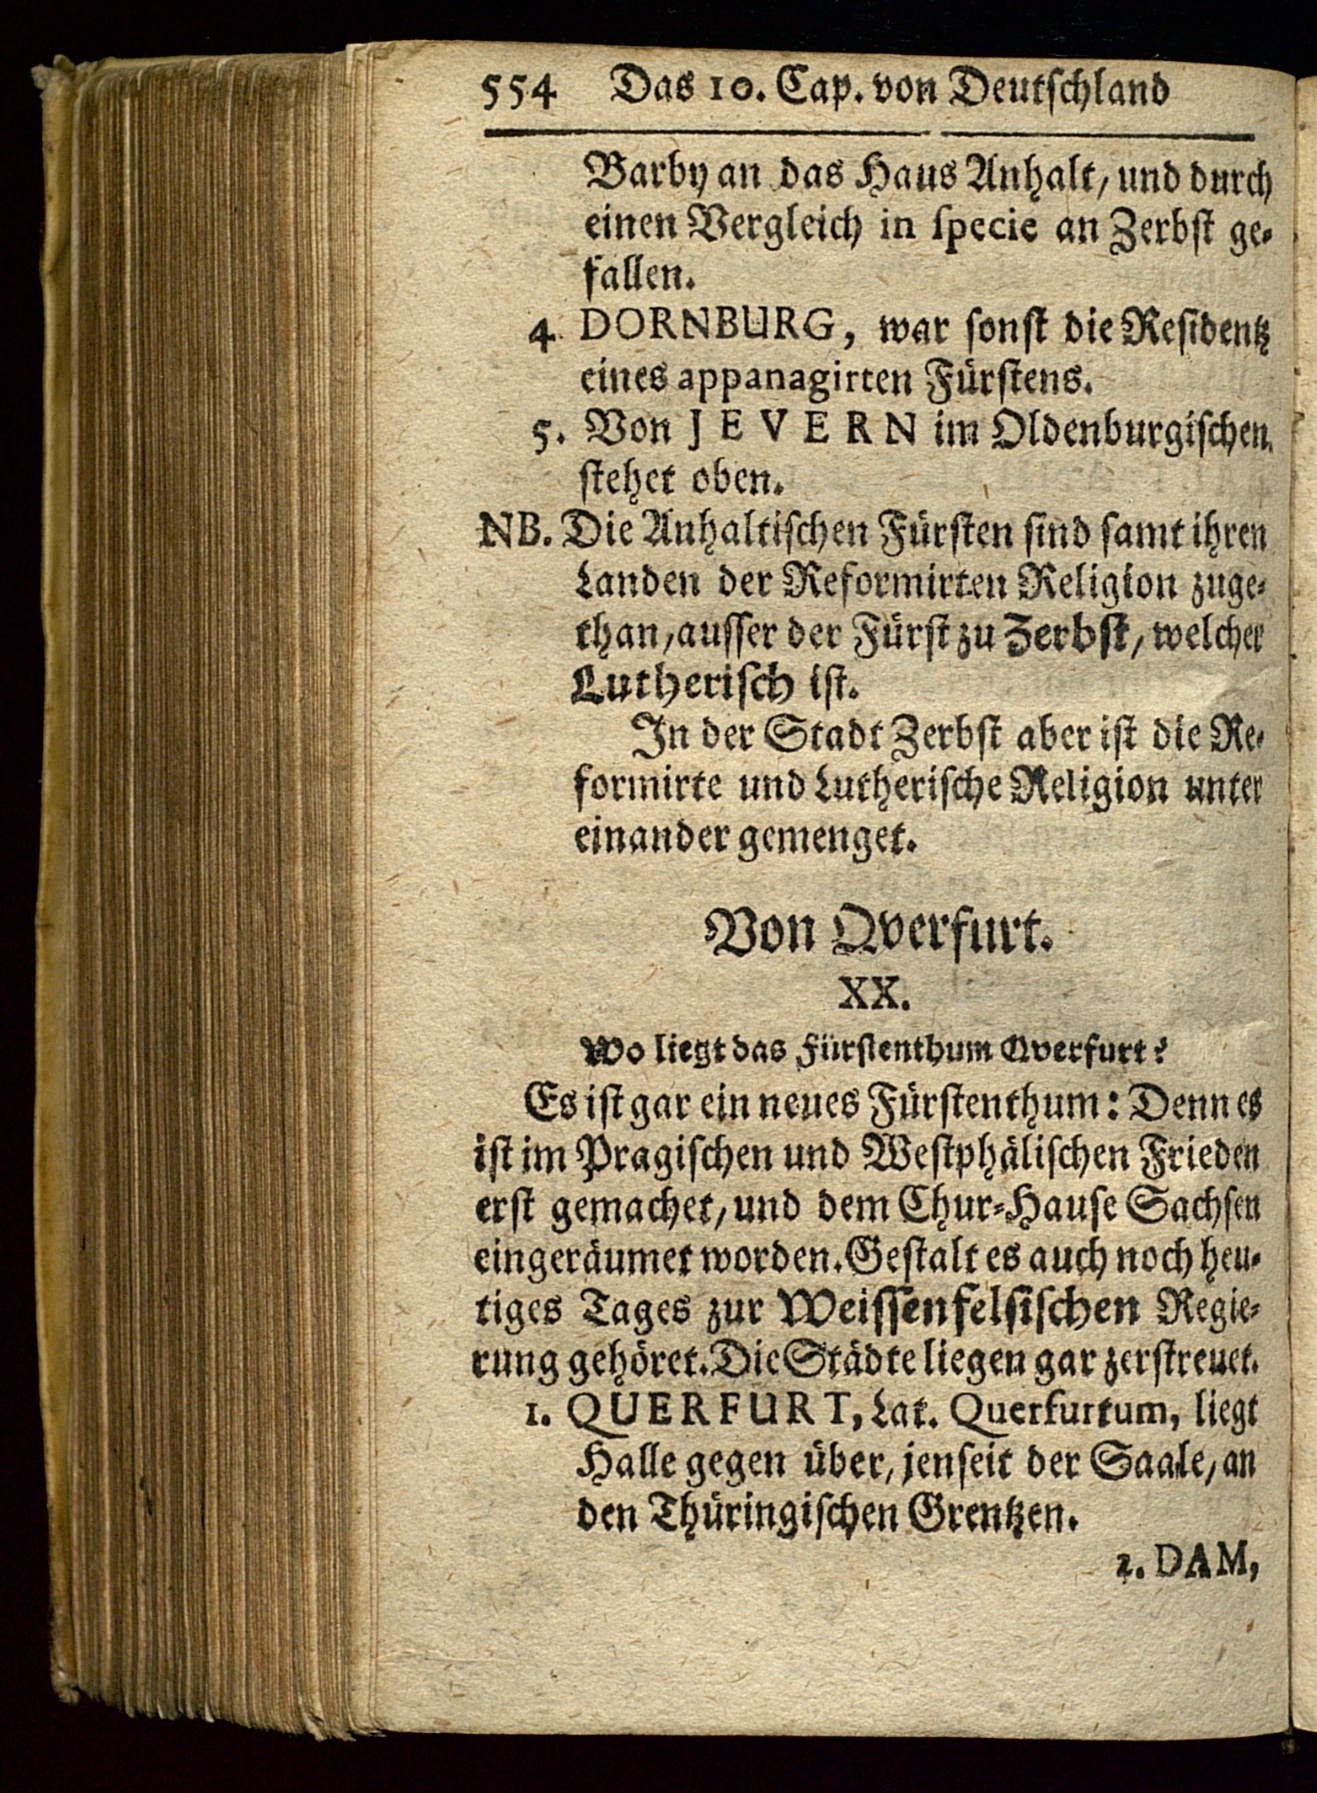 554 Das 10. Cap. von Deutschland
Barby an das Haus Anhalt, und durch
einen Vergleich in specie an Zerbst ge-
fallen.
4. DORNBURG, war sonst die Residentz
eines appanagirten Fürstens.
5. Von JEVERN im Oldenburgischen,
stehet oben.
NB. Die Anhaltischen Fürsten sind samt ihren
Landen der Reformirten Religion zuge-
than, ausser der Fürst zu Zerbst, welcher
Lutherisch ist.
In der Stadt Zerbst aber ist die Re-
formirte und Lutherische Religion unter
einander gemenget.
Von Qverfurt.
XX.
Wo liegt das Fürstenthum Qverfurt?
Es ist gar ein neues Fürstenthum: Denn es
ist im Pragischen und Westphälischen Frieden
erst gemachet, und dem Chur-Hause Sachsen
eingeräumet worden. Gestalt es auch noch heu-
tiges Tages zur Weissenfelsischen Regie-
rung gehöret. Die Städte liegen gar zerstreuet.
1. QUERFURT, Lat. Querfurtum, liegt
Halle gegen über, jenseit der Saale, an
den Thüringischen Grentzen.
2. DAM,